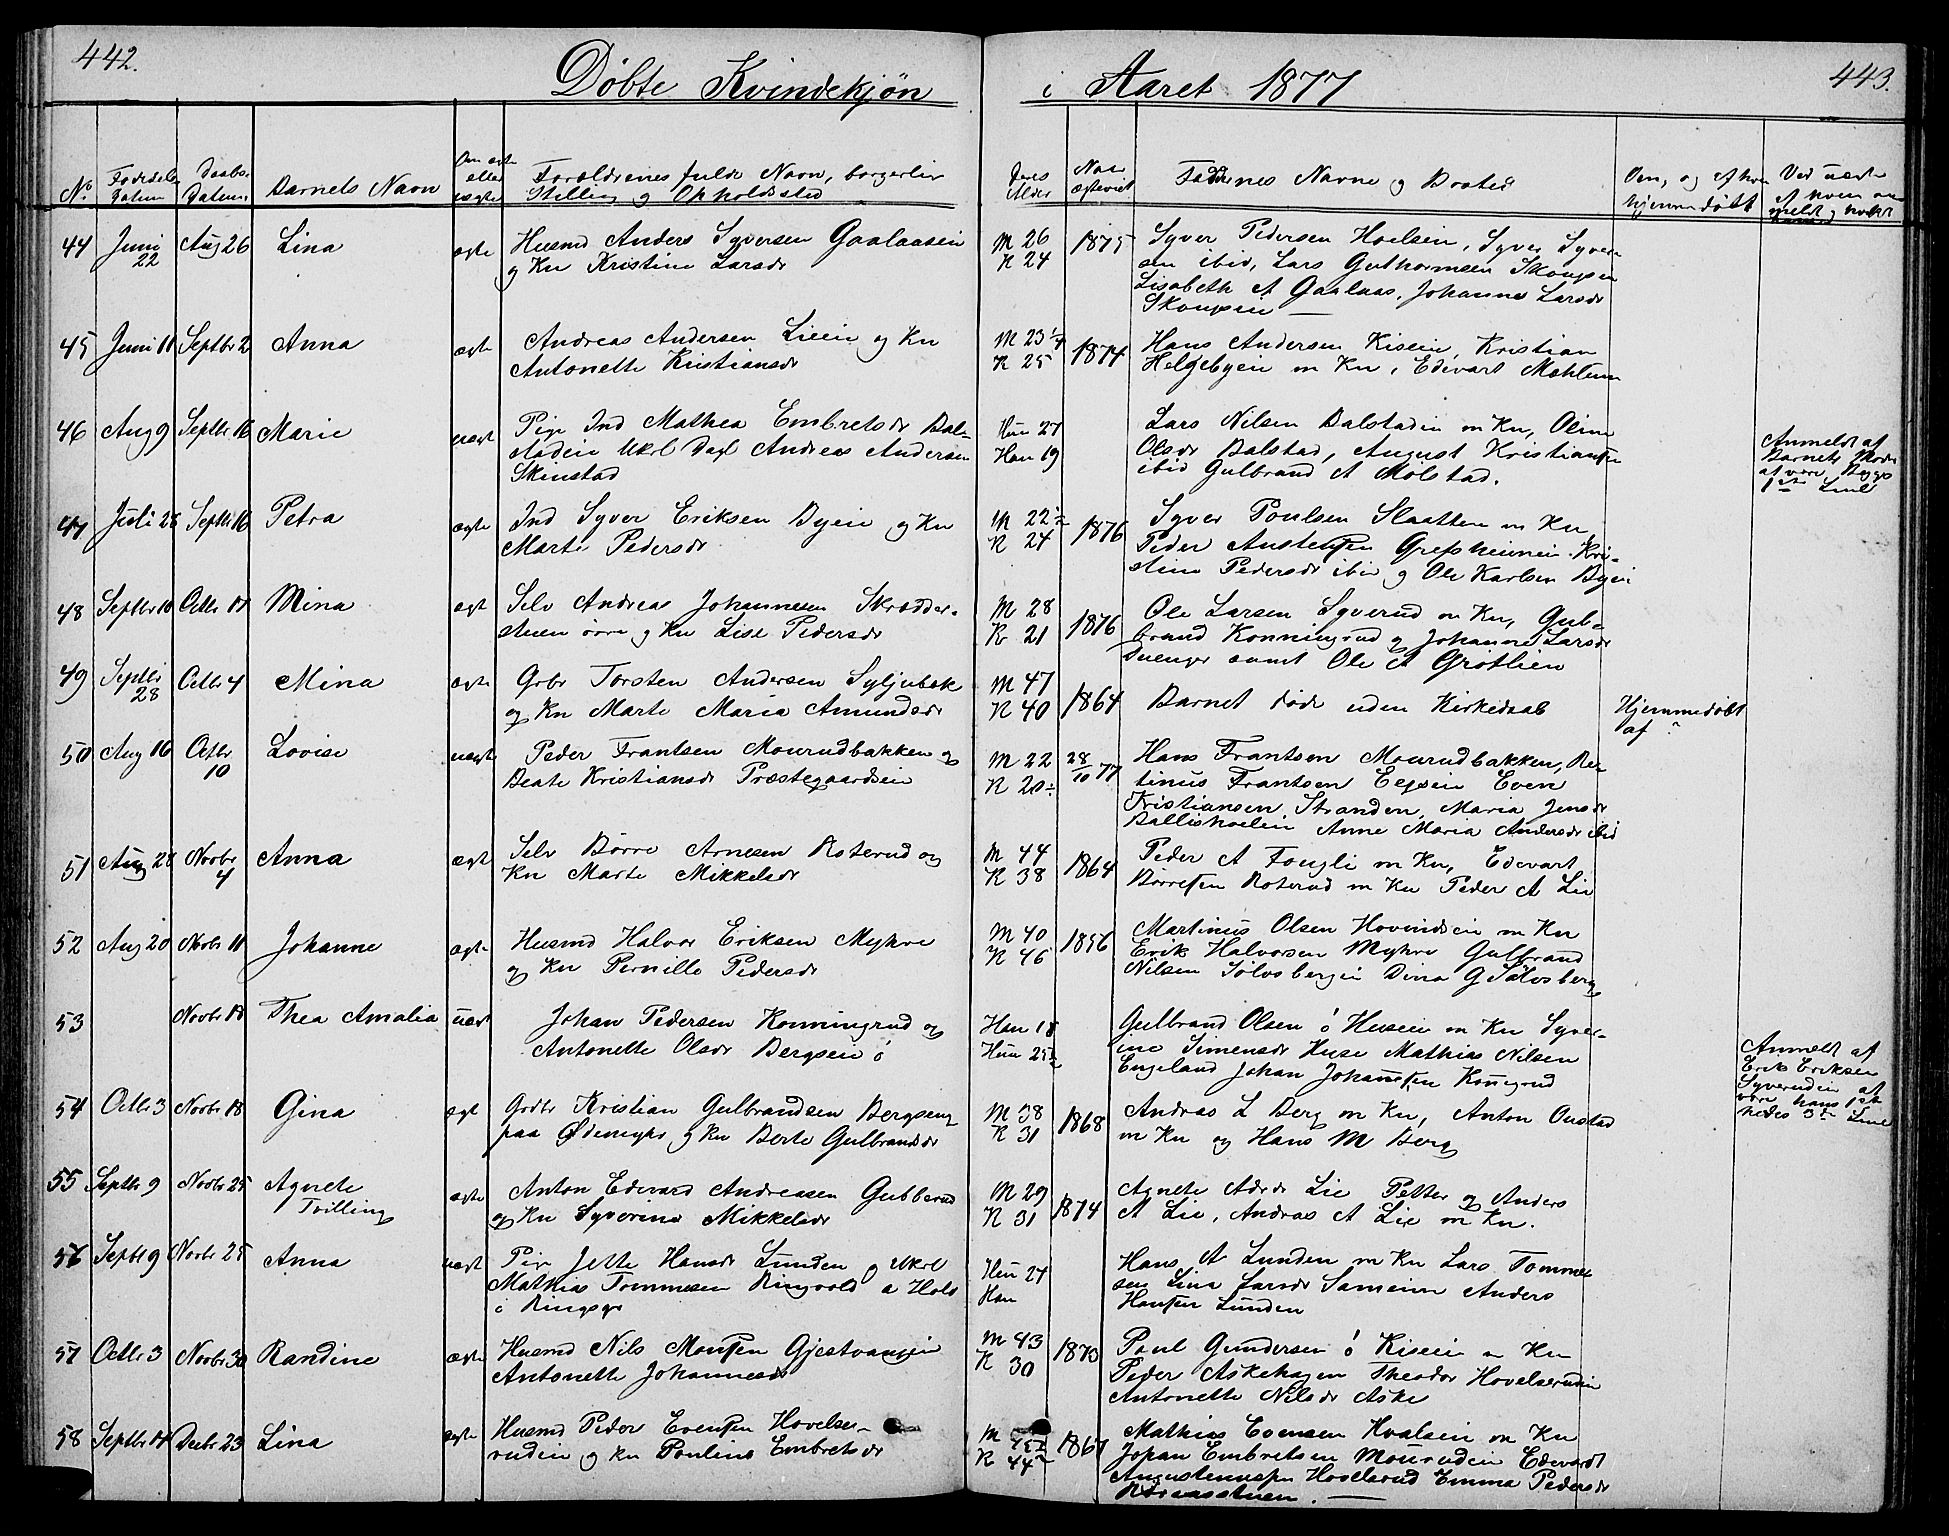 442.
Døbte Kvindekjøn
i Aaret 1877
443.
No
Fødsels Datum
Daabs Datum
Barnets Navn
Om ægte eller uægte
Forældrenes fulde Navn, borgerlig Stilling og Opholdssted
Alder
Faddernes Navne og
hjemmedøbt
44 Juni 22 Aug 26 Lina ægte
Husmd Anders Syversen Gaalaaseie
og Kn Kristine Larsdr
M 26
K 24
1875
Syver Pedersen Hoelseie, Syver Syver-
sen ibid, Lars Guthormsen
Lisabeth A Gaalaas, Johanne Larsdr
45 Juni 11 Septbr 2 Anna ægte
Andreas Andersen Lieeie og Kn
Antonette Kristiansdr
M 23 1/4
K 25
1874
Hans Andersen Kiseie, Kristian
Helgebyeie m Kn, Edevart
46 Aug 9 Septbr 16 Marie uægt
Pige Ind Mathea Embretsdr Bal-
stadeie Ukrl Dagl Andreas Andersen
Skinstad
Hun 27
Han 19
Lars Nilsen Balstadeie m Kn, Oline
Olsdr Balstad, August Kristiansen
ibid Gulbrand A Molstad.
Anmeldt af
Barnets Moder
at være Begges
1ste Leiel
47 Juli 28 Septbr 16 Petra ægte
Ind Syver Eriksen Byeie og Kn
Marte Pedersdr
M 22 1/2
K 24
1876
Syver Poulsen Slaatten m Kn
Peder Austensen Grefsheimeie Kri-
stine Pedersdr ibid og Ole Karlsen Byeie
48 Septbr 10 Octbr Mina ægt
Selv Andreas Johannesen Skrædder-
stuen øvre og Kn Lise Pedersdr
M 28
K 21
1876
Ole Larsen Syverud m Kn, Gul-
brand Konningrud og Johanne Larsdr
samt Ole A Grøtlien
49 Septbr 28 Octbr 4 Mina ægte
Grbr Torsten Andersen Syljubæk
og Kn Marte Maria Amundsdr
M 47
K 40
1864
Barnet død uden Kirkedaab
Hjemmedøbt
af ?
50 Aug 16 Octbr 10 Lovise uægt
Peder Frantsen Mourudbakken og
Beate Kristiansdr Præstegaardseie
M 22
K 20
28/10 77
Hans Frantsen Mourudbakken, Ber-
tinus Frantsen Even
Kristiansen Stranden, Maria Jensdr
Ballishoeleie Anne Maria Andersdr ibid
51 Aug 28 Novbr 4 Anna ægt
Selv Børre Arnesen Roterud og
Kn Marte Mikkelsdr
M 44
K 38
1864
Peder A Fougli m Kn, Edevart
Børresen Roterud m Kn Peder A Lie
52 Aug 20 Novbr 11 Johanne ægt
Husmd Halvor Eriksen Myhre
og Kn Pernille Pedersdr
M 40
K 46
1856
Martinus Olsen Hovindseie m Kn
Erik Halvorsen Myhre Gulbrand
Nilsen Sølvsbergeie Dina G Sølvsberg
53 Novbr 18 Thea Amalia uægt
Johan Pedersen Konningrud og
Antonette Olsdr Bergseie ø
Han 18
Hun 25 1/2
Gulbrand Olsen ø Huseie m Kn Syver-
ine Simensdr Huse Mathias Nilsen
Engeland Johan Johannesen
Anmeldt af
Erik Eriksen
Syverudeie at
være hans 1ste
hendes 3die Leiel
54 Octbr 3 Novbr 18 Gina ægt
Grdbr Kristian Gulbrandsen Bergseng
paa Ødemyhr og Kn Berte Gulbrandsdr
M 38
K 31
1868
Andreas L Berg m Kn, Anton Oustad
m Kn og Hans M Berg
55 Septbr 9 Novbr 25 Agnete
Tvilling ægte
Anton Edevard Andreassen Gubberud
og Kn Syverine Mikkelsdr
M 29
K 31
1874
Agnete Lie Petter og Anders
A Lie, Andreas A Lie m Kn.
56 Septbr 9 Novbr 25 Anna uægt
Pige Jette Hansdr Lunden og Ukrl
Mathias Tommesen Ringvold a Hols
i Ringsaker
Hun 24
Han
Hans A Lunden m Kn Lars Tomme-
sen Lina Larsdr Anders
Hansen Lunden
57 Octbr 3 Novbr 30 Randine ægte
Husmd Nils Monsen Gjestvangeie
Antonette Johannesdr
M 43
K 30
1873
Poul Gundersen ø Kiseie m Kn
Peder Askehagen Theodor Hovelsrudeie
Antonette Nilsdr Aske
58 Septbr 14 Decbr 23 Lina ægte
Husmd Peder Evensen Hovels-
rudeie og Kn Pouline Embretsdr
M 45 1/2
K 44
1867
Mathias Evensen Hvalseie m Kn
Johan Embretsen Mourudeie Edevardt
Hovelsrud Emma Pedersdr